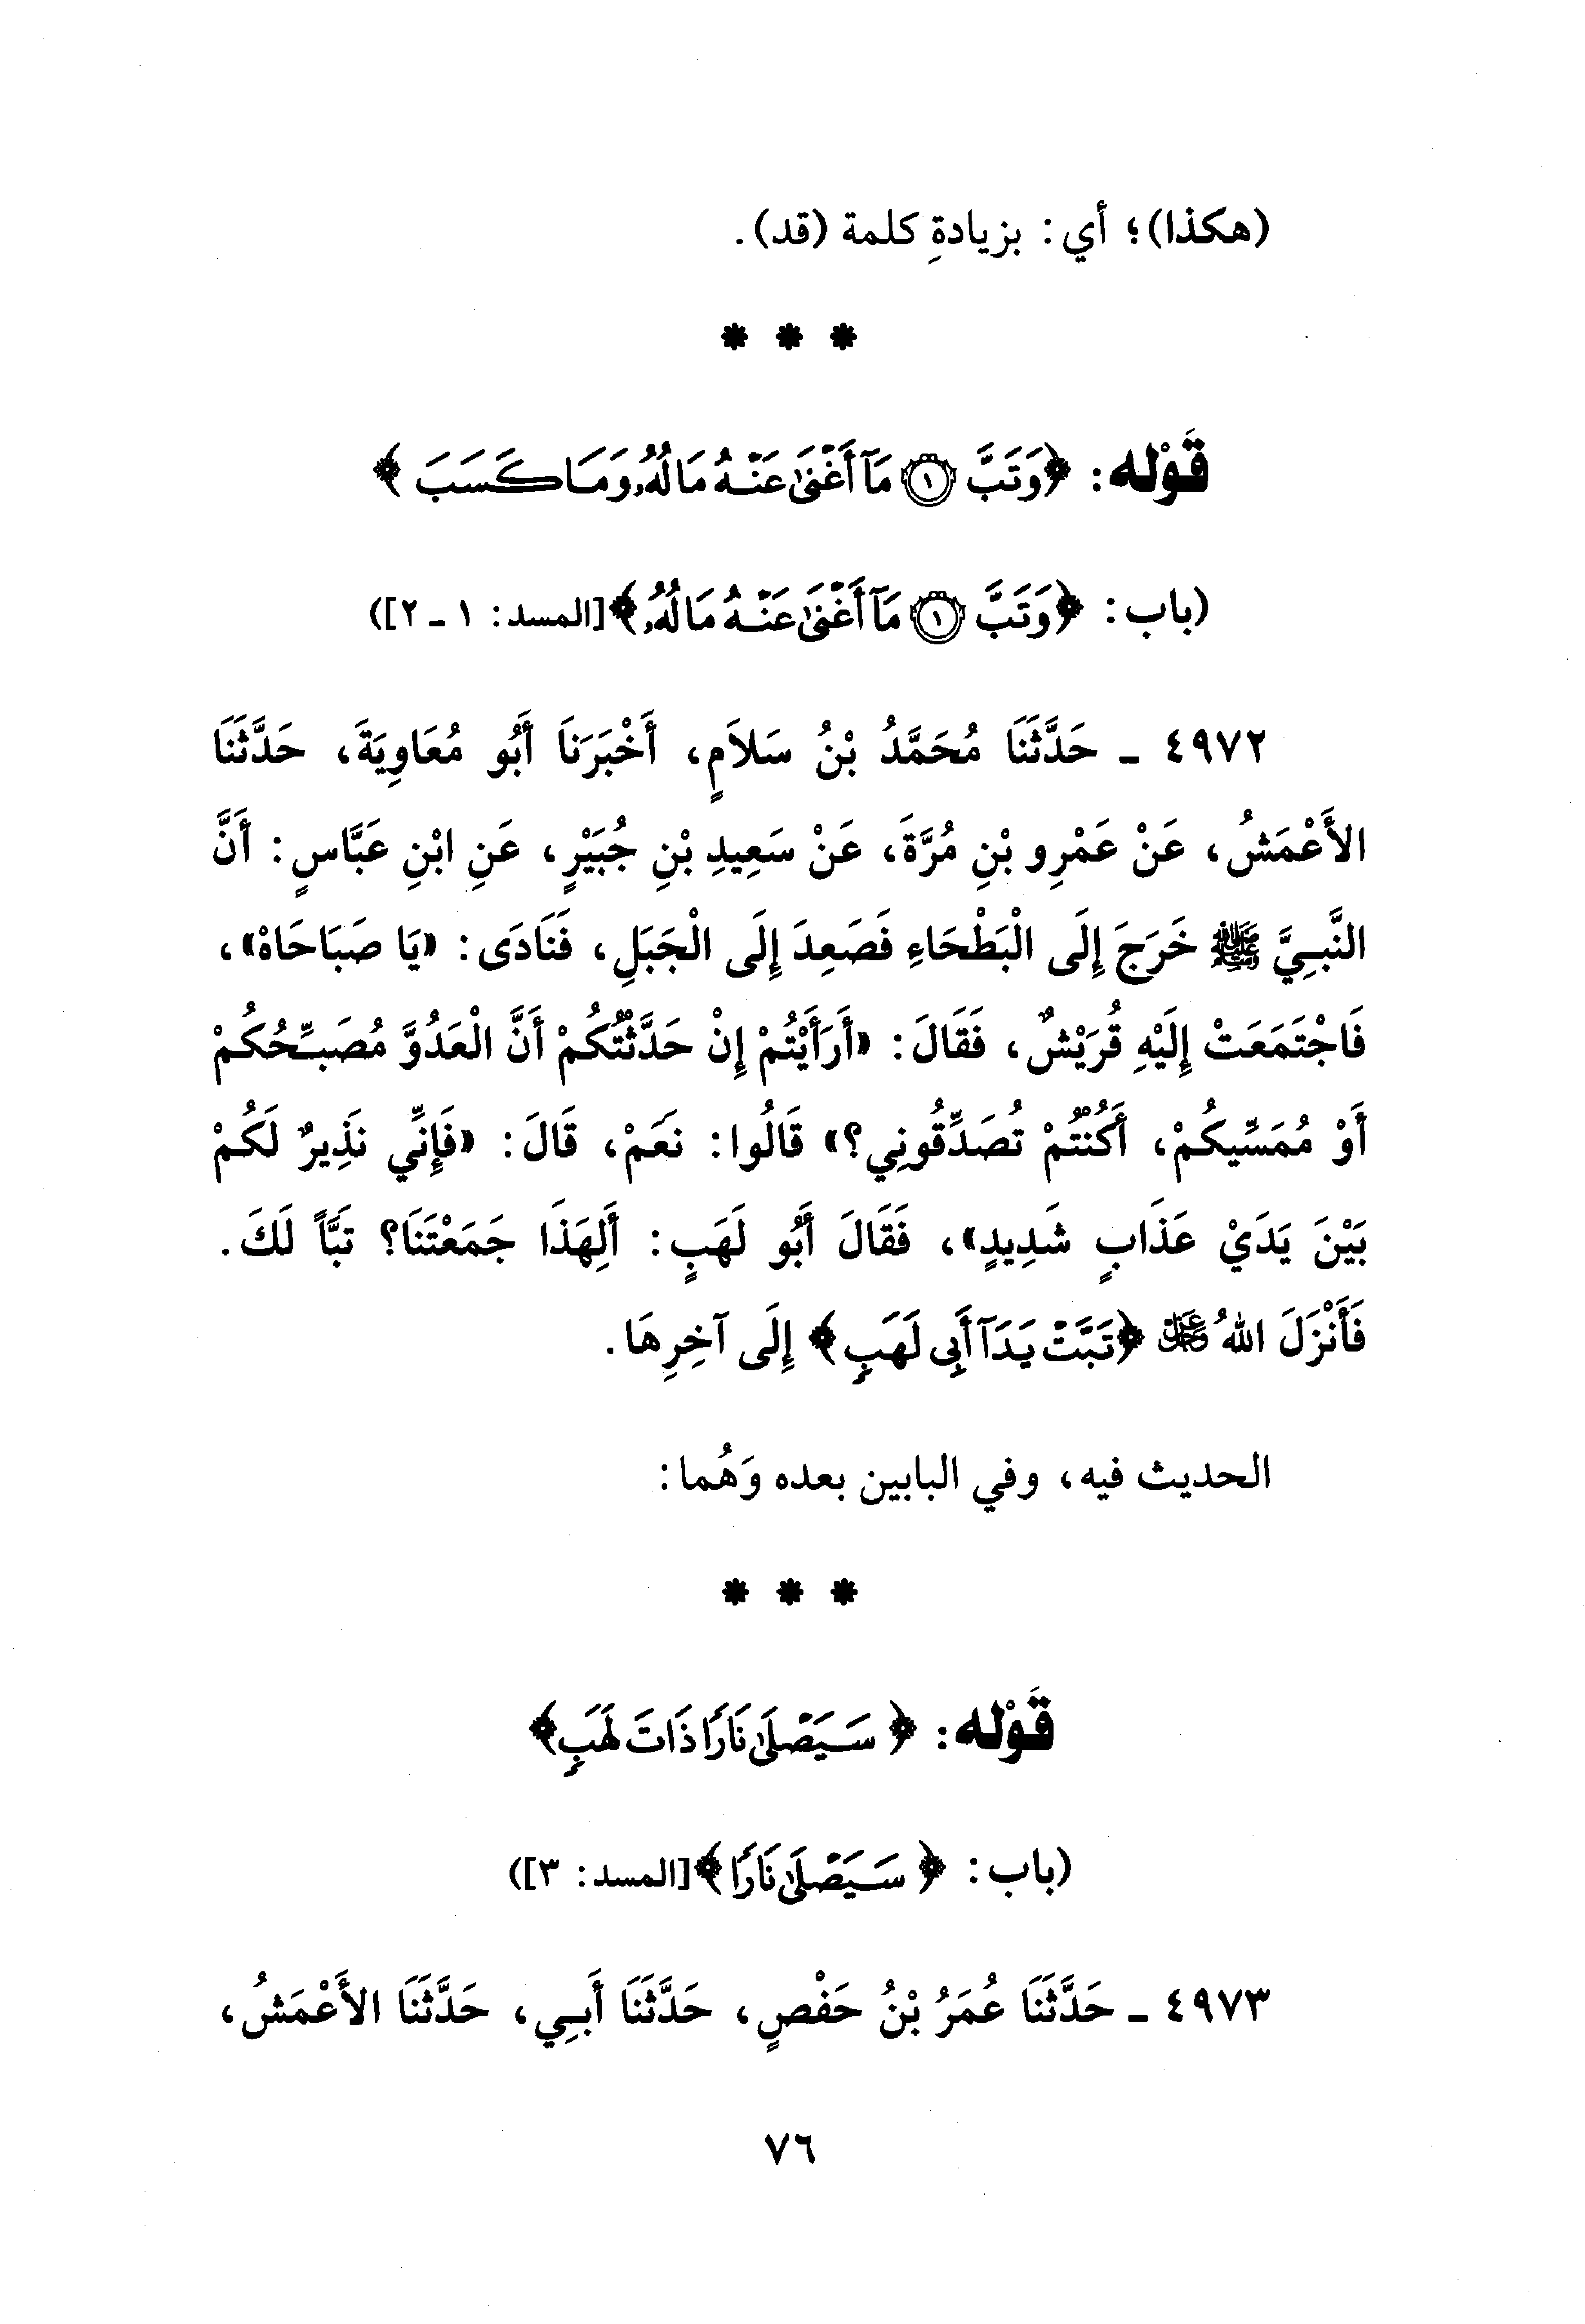 (هكذا)؛ أي: بزيادةِ كلمة (قد).
* * *
قَوْله: ﴿وَتَبَّ ۝١ مَآ أَغْنَىٰ عَنْهُ مَالُهُۥ وَمَا كَسَبَ﴾
(باب: ﴿وَتَبَّ ۝١ مَآ أَغْنَىٰ عَنْهُ مَالُهُۥ﴾[المسد: ١ ـ ٢])
٤٩٧٢ ـ حَدَّثَنَا مُحَمَّدُ بْنُ سَلاَمٍ، أَخْبَرَنَا أَبُو مُعَاوِيَةَ، حَدَّثَنَا
الأَعْمَشُ، عَنْ عَمْرِو بْنِ مُرَّةَ، عَنْ سَعِيدِ بْنِ جُبَيْرٍ، عَنِ ابْنِ عَبَّاسٍ: أَنَّ
النَّبِيَّ ﷺ خَرَجَ إِلَى الْبَطْحَاءِ فَصَعِدَ إِلَى الْجَبَلِ، فَنَادَى: «يَا صَبَاحَاهْ»،
فَاجْتَمَعَتْ إِلَيْهِ قُرَيْشٌ، فَقَالَ: «أَرَأَيْتُمْ إِنْ حَدَّثْتُكُمْ أَنَّ الْعَدُوَّ مُصَبِّحُكُمْ
أَوْ مُمَسِّيكُمْ، أَكُنْتُمْ تُصَدِّقُونِي؟» قَالُوا: نَعَمْ، قَالَ: «فَإِنِّي نَذِيرٌ لَكُمْ
بَيْنَ يَدَيْ عَذَابٍ شَدِيدٍ»، فَقَالَ أَبُو لَهَبٍ: أَلِهَذَا جَمَعْتَنَا؟ تَبّاً لَكَ.
فَأَنْزَلَ اللهُ عَزَّ وَجَلَّ ﴿تَبَّتْ يَدَآ أَبِى لَهَبٍ﴾ إِلَى آخِرِهَا.
الحديث فيه، وفي البابين بعده وَهُما:
* * *
قَوْله: ﴿سَيَصْلَىٰ نَارًا ذَاتَ لَهَبٍ﴾
(باب: ﴿سَيَصْلَىٰ نَارًا﴾[المسد: ٣])
٤٩٧٣ ـ حَدَّثَنَا عُمَرُ بْنُ حَفْصٍ، حَدَّثَنَا أَبِي، حَدَّثَنَا الأَعْمَشُ،
٧٦